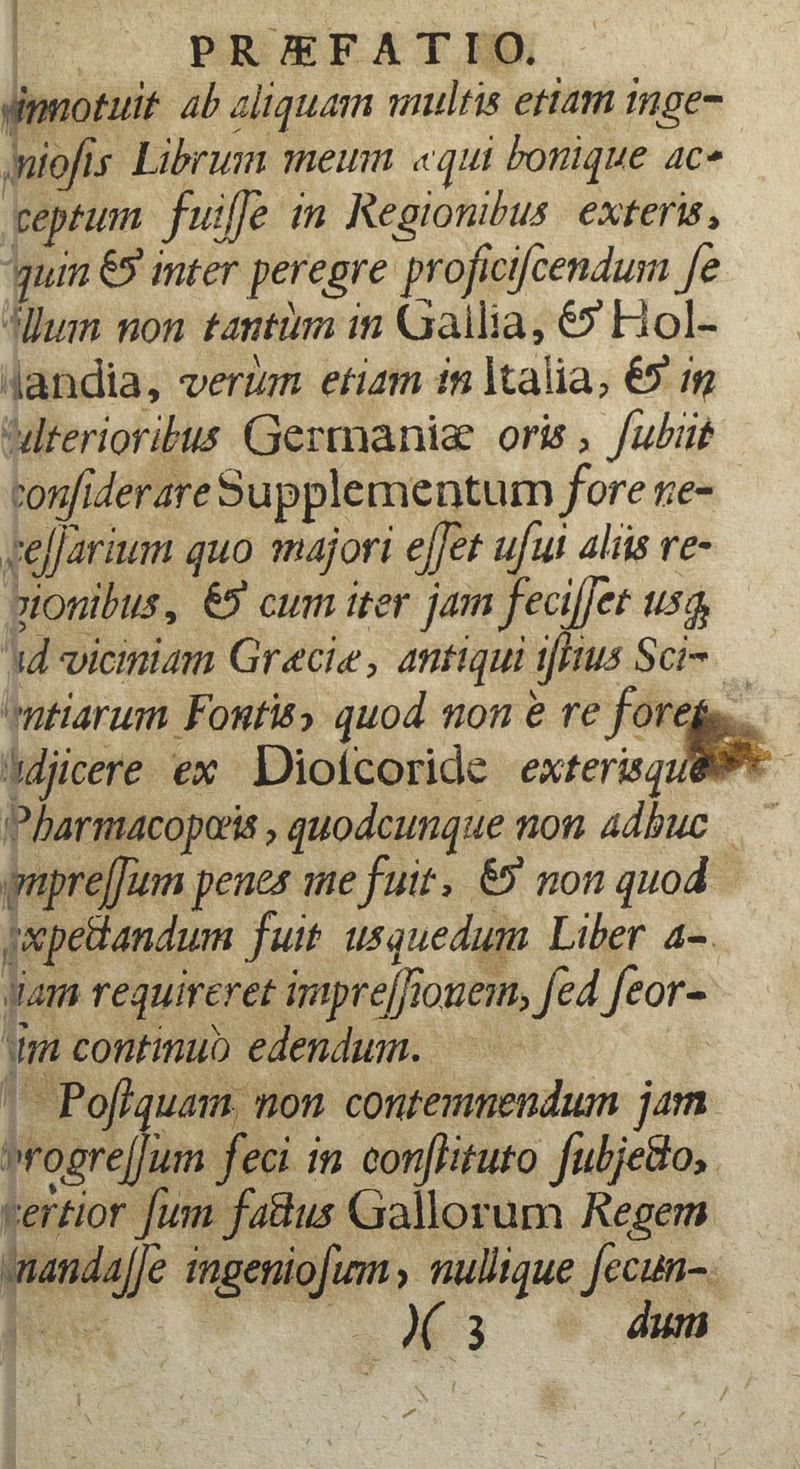 PRÆFATIO.
innotuit ab aliquam multis etiam inge-
niosis Librum meum æqui bonique ac-
ceptum fuiſſe in Regionibus exteris,
quin & inter peregre proficiſcendum ſe
illum non tantùm in Gallia, & Hol-
landia, verùm etiam in Italia, & in
ulterioribus Germaniæ oris, ſubiit
conſiderare Supplementum fore ne-
ceſſarium quo majori eſſet uſui aliis re-
gionibus, & cum iter jam feciſſet usq;
ad viciniam Græciæ, antiqui iſtius Sci-
entiarum Fontis, quod non è re foret
adjicere ex Dioſcoride exterisque
Pharmacopœis, quodcunque non adhuc
impreſſum penes me fuit, & non quod
expectandum fuit usquedum Liber a-
liam requireret impreſſionem, ſed ſeor-
im continuò edendum.
Poſtquam non contemnendum jam
progreſſum feci in conſtituto ſubjecto,
certior ſum factus Gallorum Regem
mandaſſe ingenioſum, nullique ſecun-
)( 3 dum